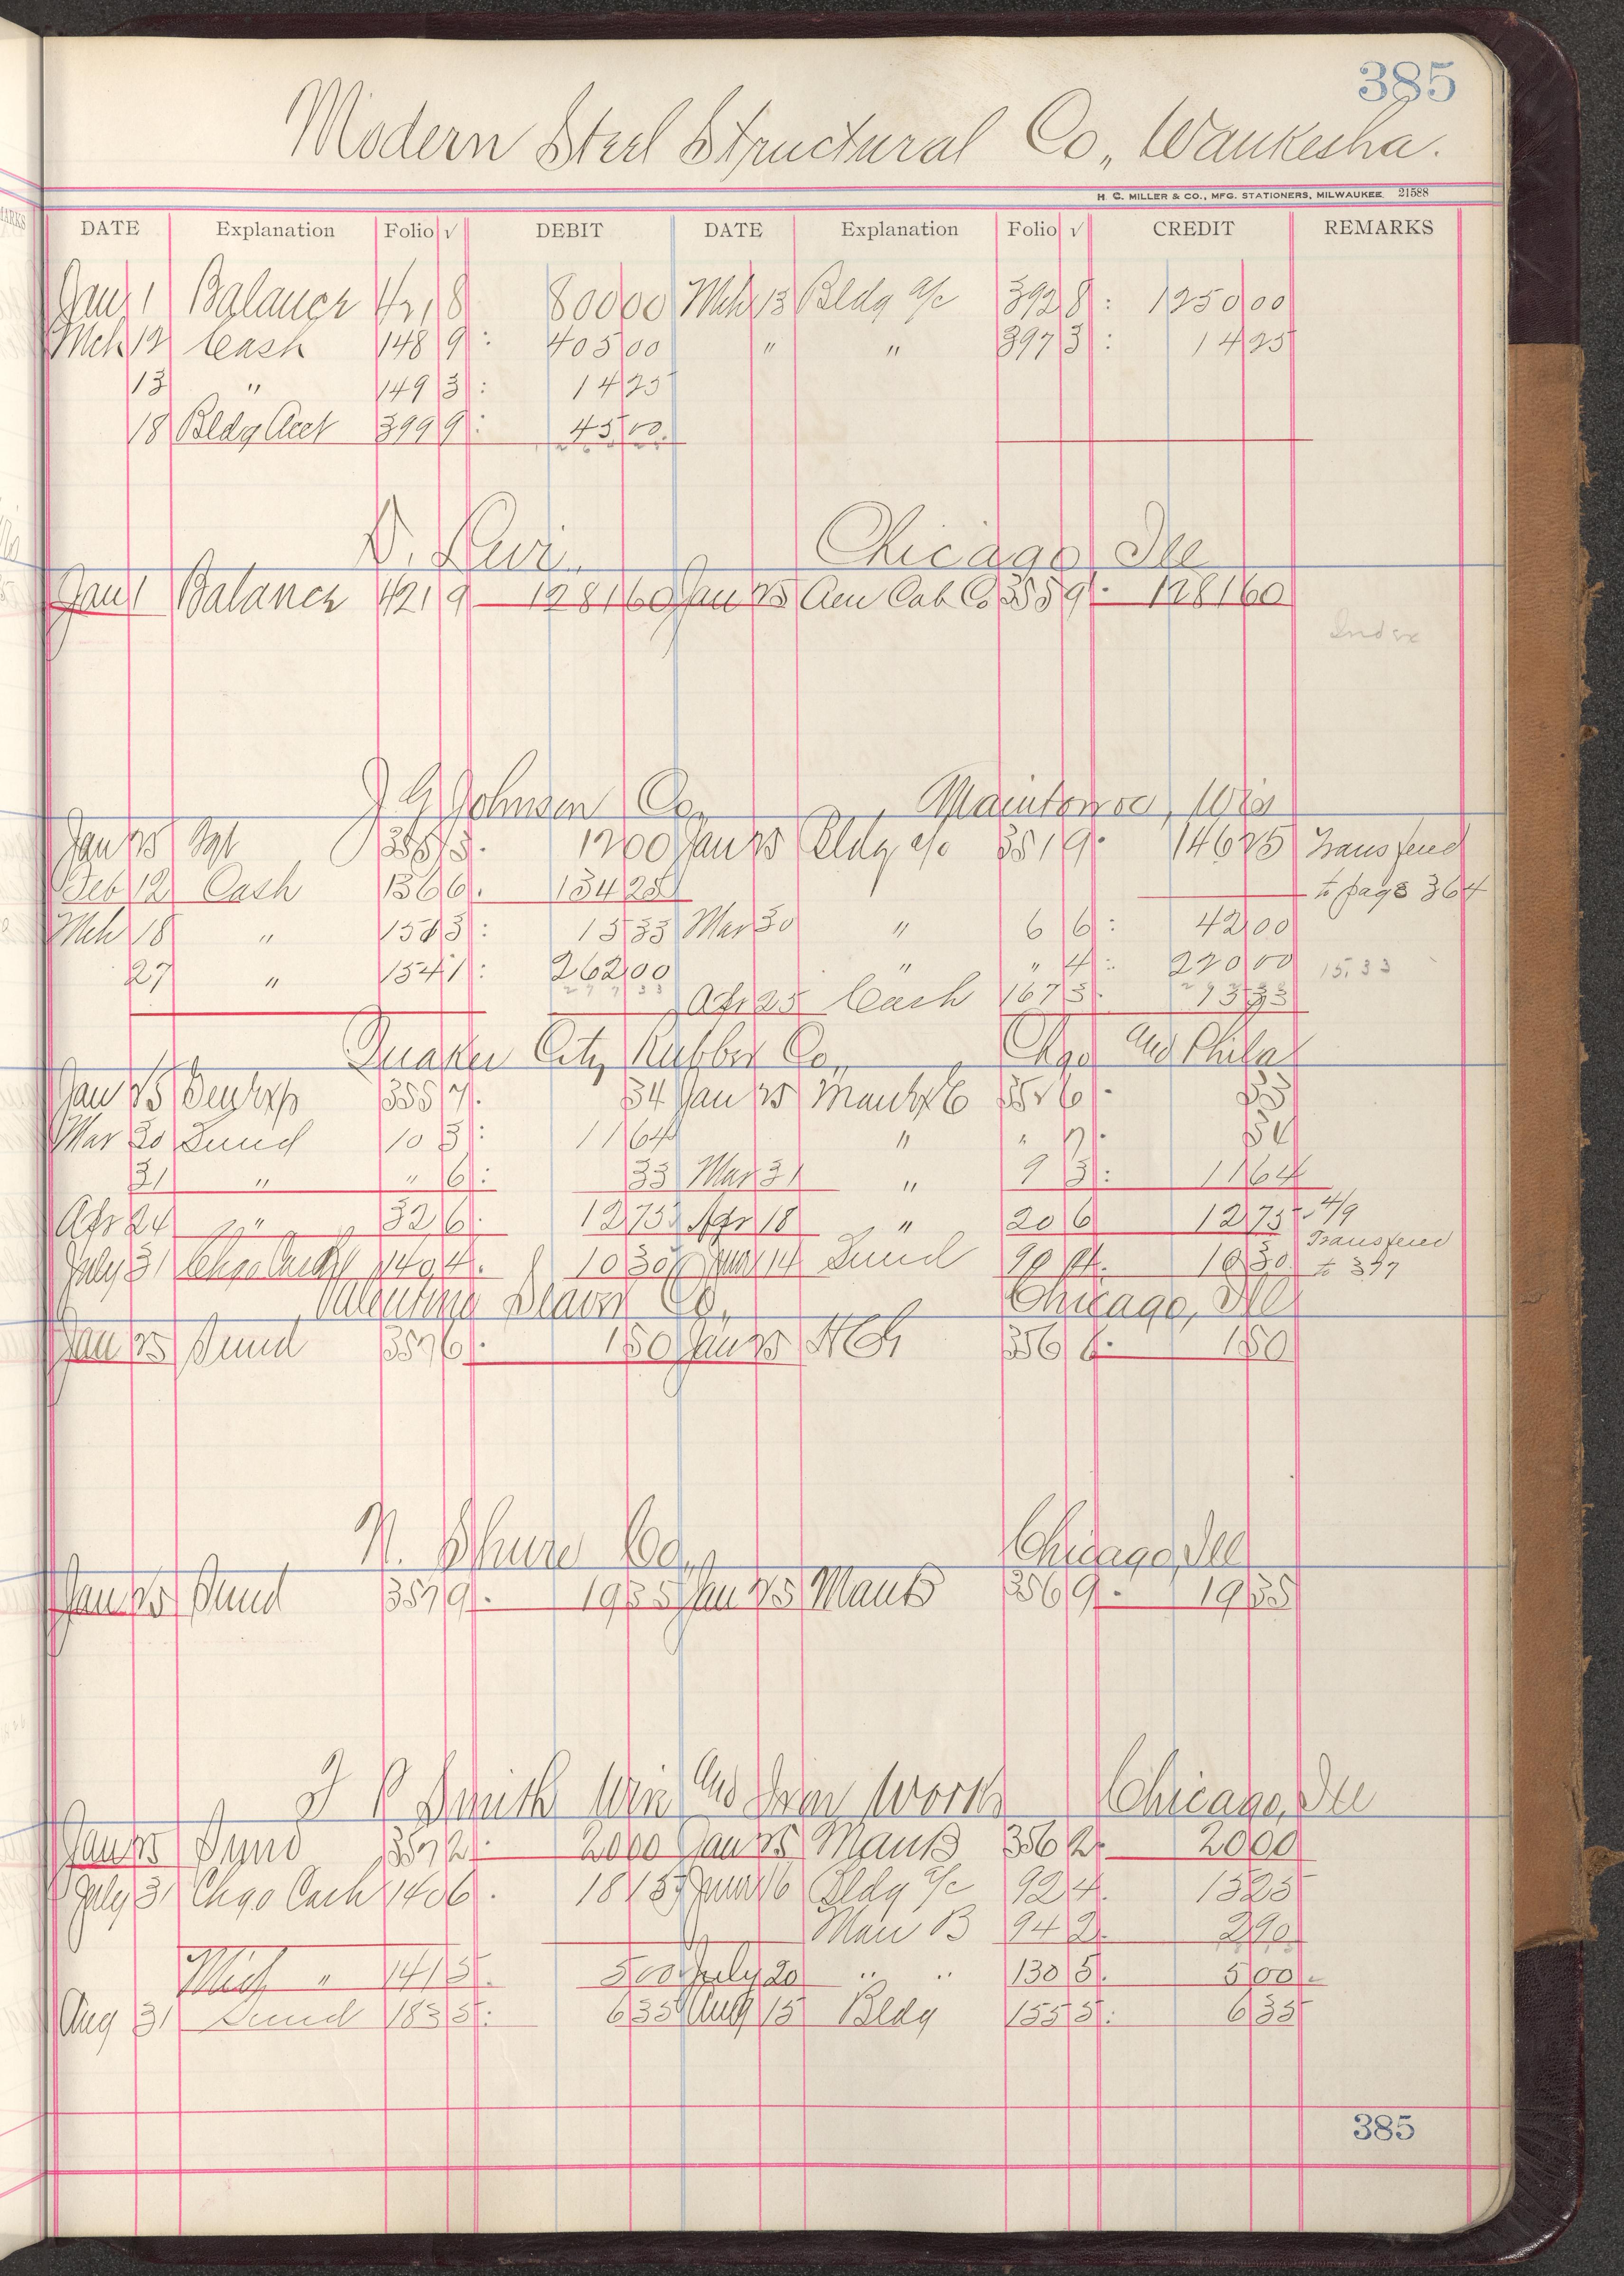 385
Modern Steel Structural Co., Waukesha.
H. C. MILLER & CO., MFG. STATIONERS, MILWAUKEE. 21588
DATE Explanation Folio √ DEBIT DATE Explanation Folio √ CREDIT REMARKS
Jan 1 Balance 80000 Mch 13 Bldg a/c 392 8: 1250 00
Mch 12 Cash 148 9: 405 00 " " 397 3: 14 25
13 " 149 3: 14 25
18 Bldg Acct 399 9: 45 00
Chicago Ill
Jan 1 Balance 421 9 1281 60 Jan 25 Am Cab Co 355 9 1281 60
Index
J G Johnson Co., Manitowoc, Wis
Jan 25 12 00 Jan 25 Bldg a/c 351 9 146 25 Transfered
Feb 12 Cash 136 6. 134 25 to page 364
Mch 18 " 15 33 Mar 30 " 6 6: 42 00
27 " 154 1: 262 00 " " 4: 220 00 15.33
Apr 25 Cash 167 3 15 33
Quaker City Rubber Co., Chgo and Phila
Jan 25 355 7. 34 Jan 25
Mar 30 Sund 10 3: 11 64 " "
31 " " 6: 33 Mar 31 " 9 3: 11 64
Apr 24 " 32 6 12 73 Apr 18 " 20 6 12 73 4/9
July 31 Chgo Cash 140 4. 10 30 June 14 Sund 10 30 Transfered
to 397
Valentine Co., Chicago, Ill
Jan 25 Sund 357 6. 1 50 Jan 25 356 6. 1 50
N. Shure Co., Chicago, Ill
Jan 25 Sund 357 9. 19 35 Jan 25 Man B 356 9. 19 35
F P Smith Wire and Iron Works Chicago, Ill
Jan 25 Sund 357 2. 20 00 Jan 25 Man B 356 2. 20 00
July 31 Chgo Cash 140 6. 18 15 June 16 Bldg a/c 92 4. 15 25
Man B 94 2. 2 90
" 141 5. 5 00 July 20 " " 130 5. 5 00
Aug 31 Sund 183 5: 6 35 Aug 15 Bldg 155 5: 6 35
385